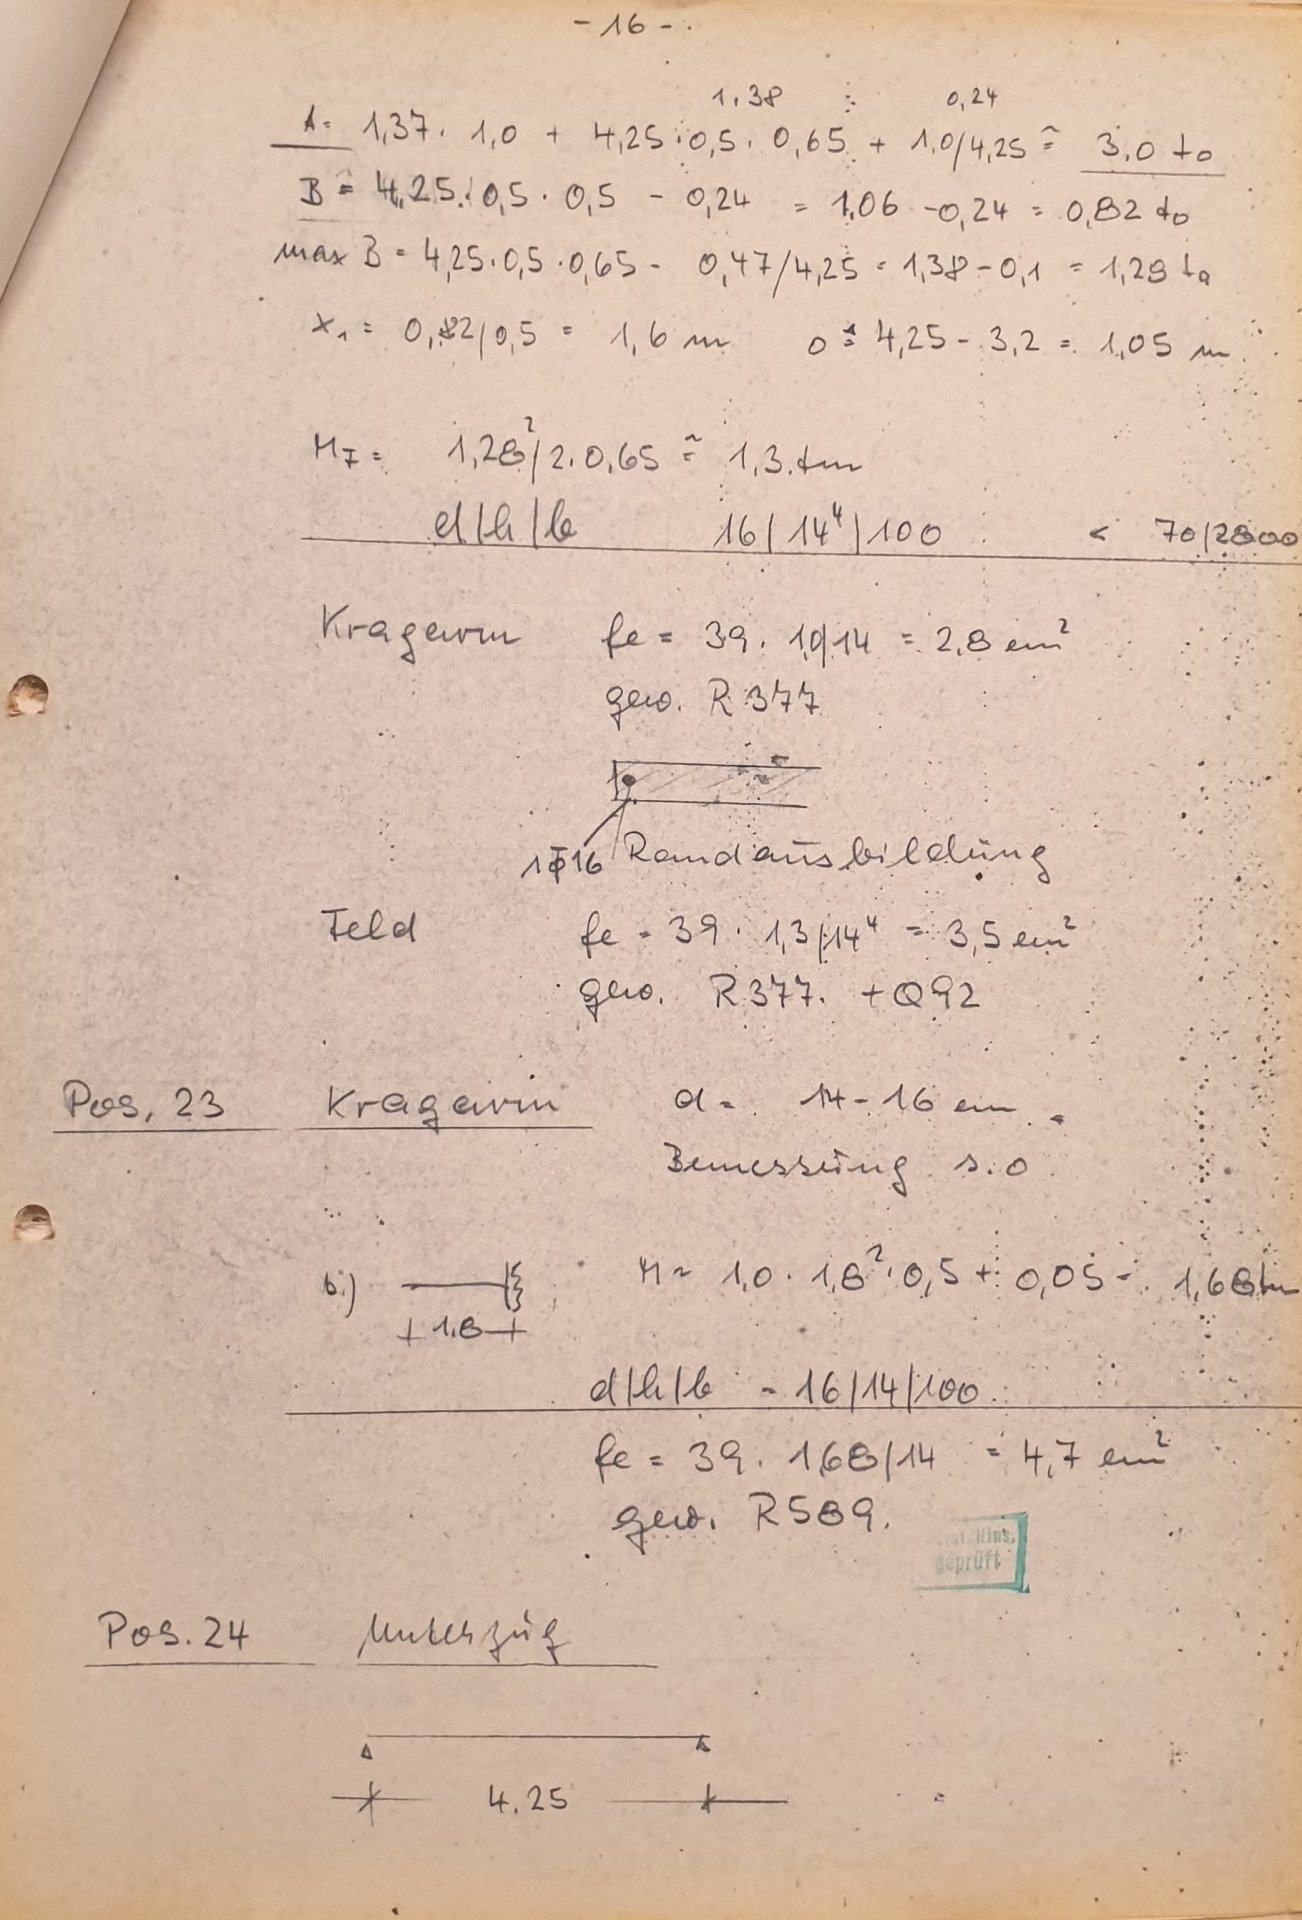 - 16 -
1,38 0,24
A = 1,37 · 1,0 + 4,25 · 0,5 · 0,65 + 1,0/4,25 ≅ 3,0 to
B = 4,25 · 0,5 · 0,5 - 0,24 = 1,06 - 0,24 = 0,82 to
max B = 4,25 · 0,5 · 0,65 - 0,47/4,25 = 1,38 - 0,1 = 1,28 to
x₁ = 0,82/0,5 = 1,6 m 0 = 4,25 - 3,2 = 1,05 m
M_F = 1,28²/2 · 0,65 ≅ 1,3 tm
d/h/b 16/14⁴/100 < 70/2800
Kragarm fe = 39 · 1,0/14 = 2,8 cm²
gew. R 377
1Φ16 Randausbildung
Feld fe = 39 · 1,3/14⁴ = 3,5 cm²
gew. R377 + Q92
Pos. 23 Kragarm d = 14 - 16 cm
Bemessung s. o
b.) M = 1,0 · 1,8² · 0,5 + 0,05 = 1,68 tm
1,8
d/h/b = 16/14/100
fe = 39 · 1,68/14 = 4,7 cm²
gew. R589.
geprüft
Pos. 24 Unterzug
4.25